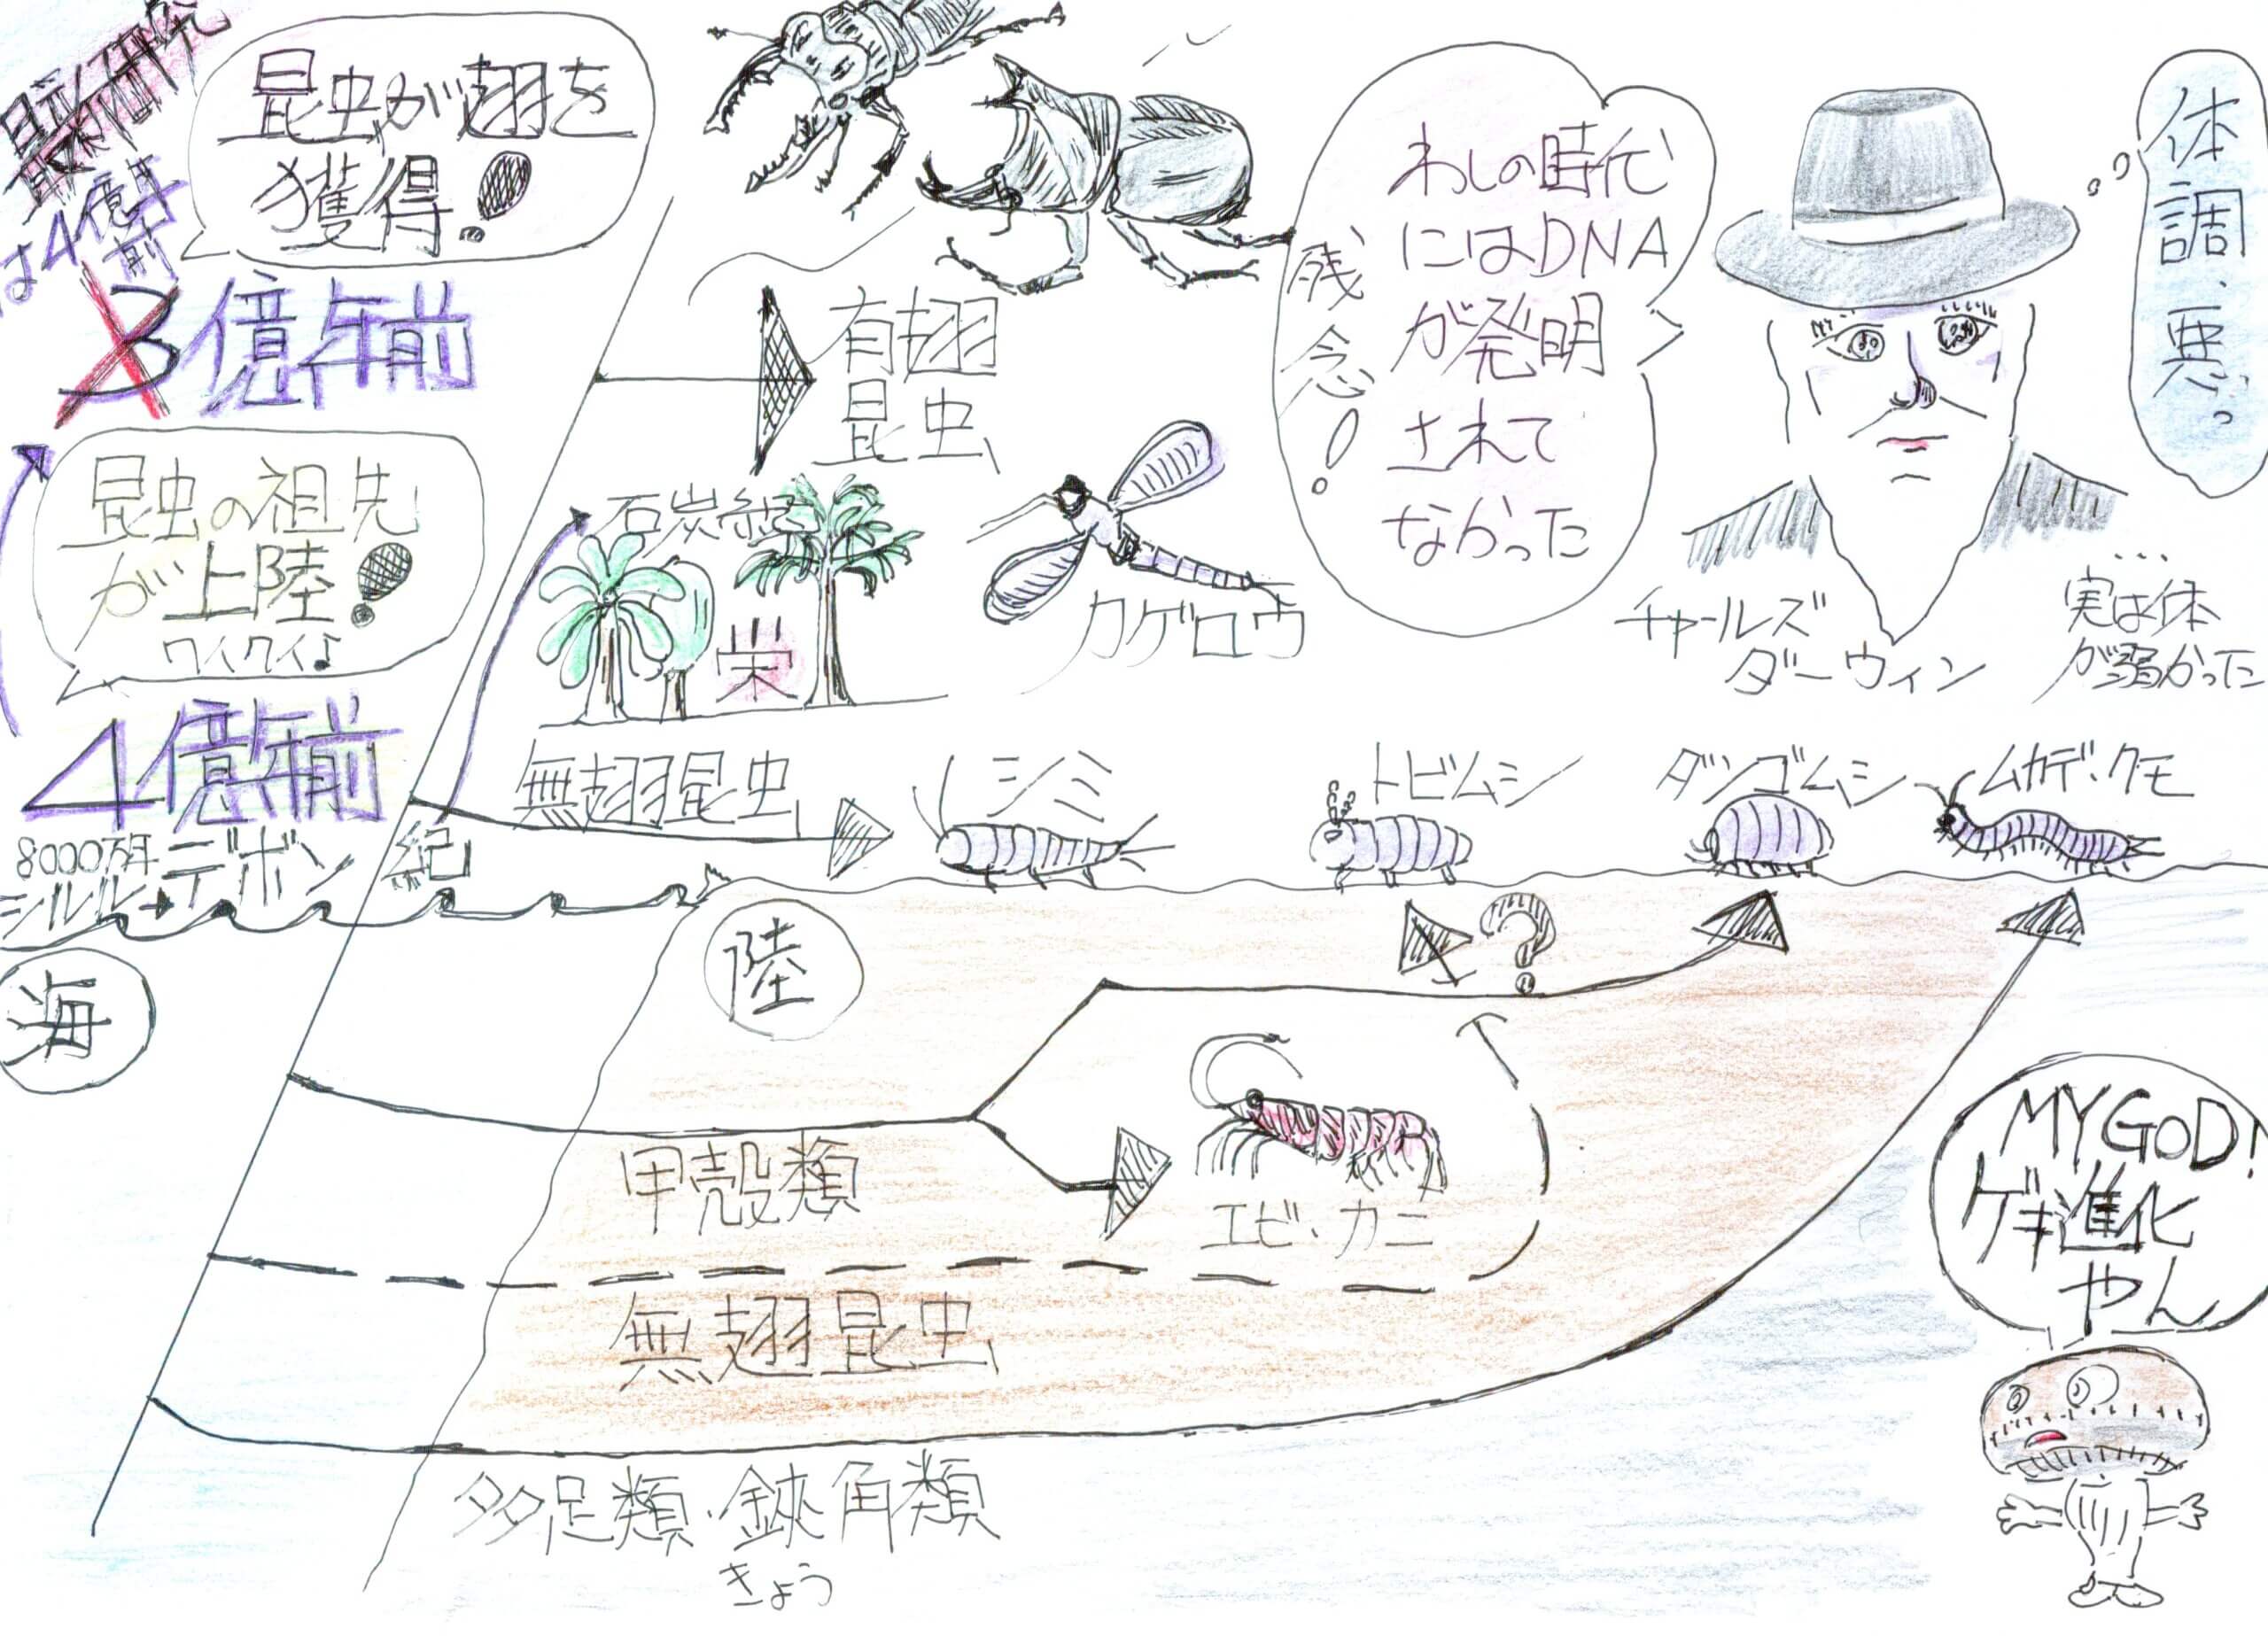 最新研究
は4億年
前
昆虫が翅を
獲得!
3億年前
昆虫の祖先
が上陸!
ワイワイ♪
4億年前
8000万年
シルル→デボン紀
海
陸
有翅
昆虫
石炭紀
栄
カゲロウ
無翅昆虫
シミ
トビムシ
ダンゴムシ
ムカデ・クモ
?
わしの時代
にはDNA
が発明
されて
なかった
残念!
体調、悪っ
チャールズ
ダーウィン
実は体
が弱かった
甲殻類
エビ・カニ
無翅昆虫
多足類・鋏角類
きょう
MY GOD!
ゲキ進化
やん